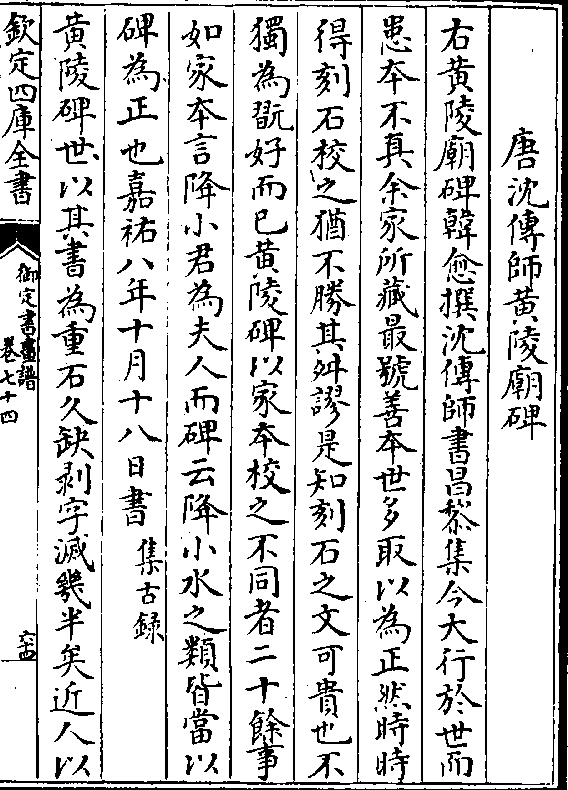 唐沈傳師黄陵廟碑
右黄陵廟碑韓愈撰沈傳師書昌黎集今大行於世而
患本不真余家所藏最號善本世多取以為正然時時
得刻石校之猶不勝其舛謬是知刻石之文可貴也不
獨為翫好而已黄陵碑以家本校之不同者二十餘事
如家本言降小君為夫人而碑云降小水之類皆當以
碑為正也嘉祐八年十月十八日書 集古録
黄陵碑世以其書為重石久缺剥字滅幾半矣近人以
欽定四庫全書
御定書畫譜
卷七十四
六十四